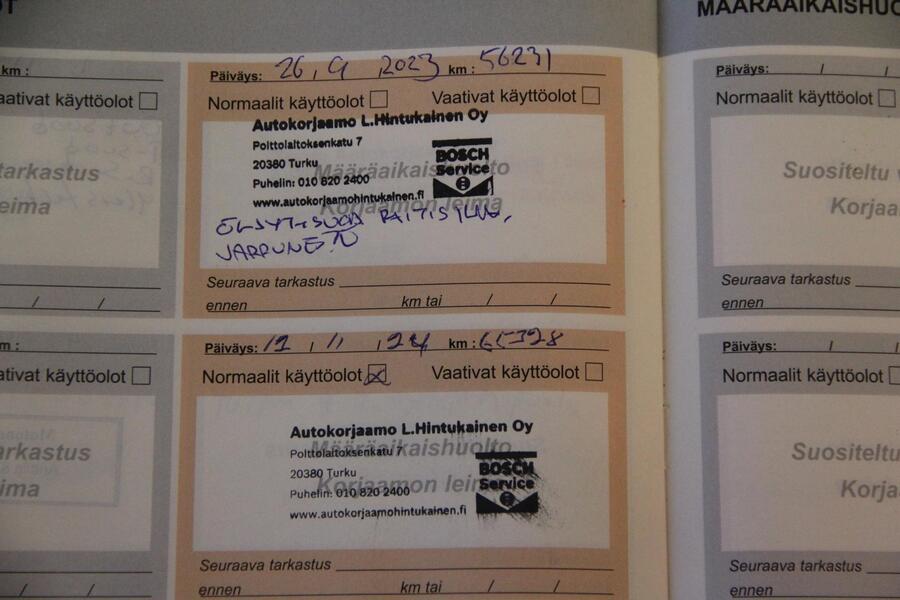 MÄÄRÄAIKAISHUO
km :
Päiväys: 26 , 9 , 2023 km : 56231
Päiväys: / /
aativat käyttöolot
Normaalit käyttöolot Vaativat käyttöolot
Normaalit käyttöolot
Autokorjaamo L.Hintukainen Oy
Polttolaitoksenkatu 7
20380 Turku
Puhelin: 010 820 2400
www.autokorjaamohintukainen.fi
BOSCH
Service
Määräaikaishuolto
Korjaamon leima
tarkastus
eima
Suositeltu
Korjaa
Seuraava tarkastus
ennen km tai / /
/ /
Seuraava tarkastus
ennen
m :
Päiväys: 12 , 11 , 24 km :
Päiväys: /
ativat käyttöolot
Normaalit käyttöolot Vaativat käyttöolot
Normaalit käyttöolot
Autokorjaamo L.Hintukainen Oy
Polttolaitoksenkatu 7
20380 Turku
Puhelin: 010 820 2400
www.autokorjaamohintukainen.fi
BOSCH
Service
Määräaikaishuolto
Korjaamon leima
arkastus
ima
Suositeltu
Korja
Seuraava tarkastus
ennen km tai / /
/ /
Seuraava tarkastus
ennen